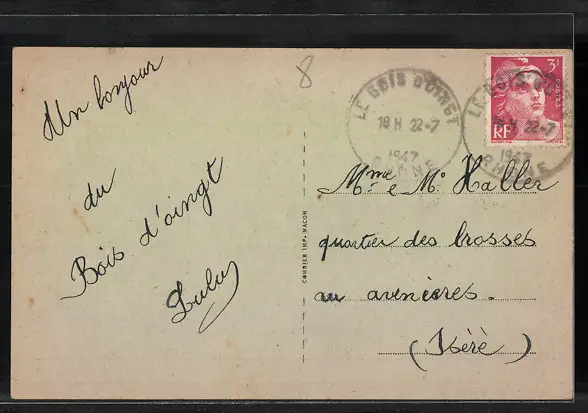 Un bonjour
du
Bois d'oingt
Lulu
8
COMBIER IMP. MACON
LE BOIS D'OINGT
18 H 22-7
1947
RHONE
3F
RF
LE BOIS D'OINGT
18 H 22-7
1947
RHONE
Mme e Mr Haller
quartier des brosses
au avenières.
(Isère)